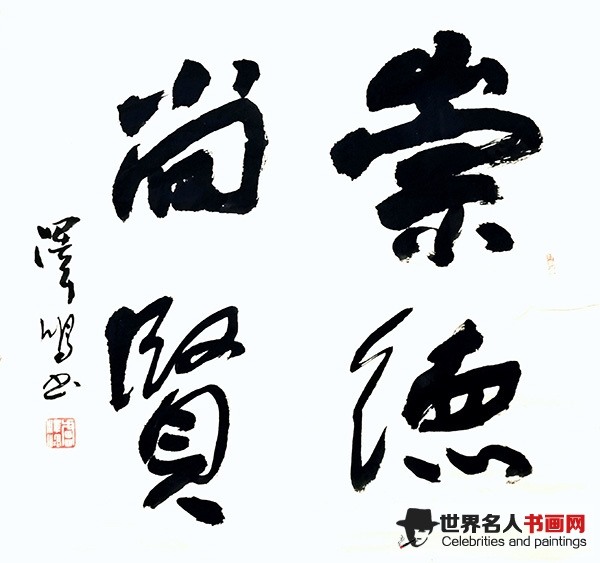 崇德
尚賢
世界名人书画网
Celebrities and paintings